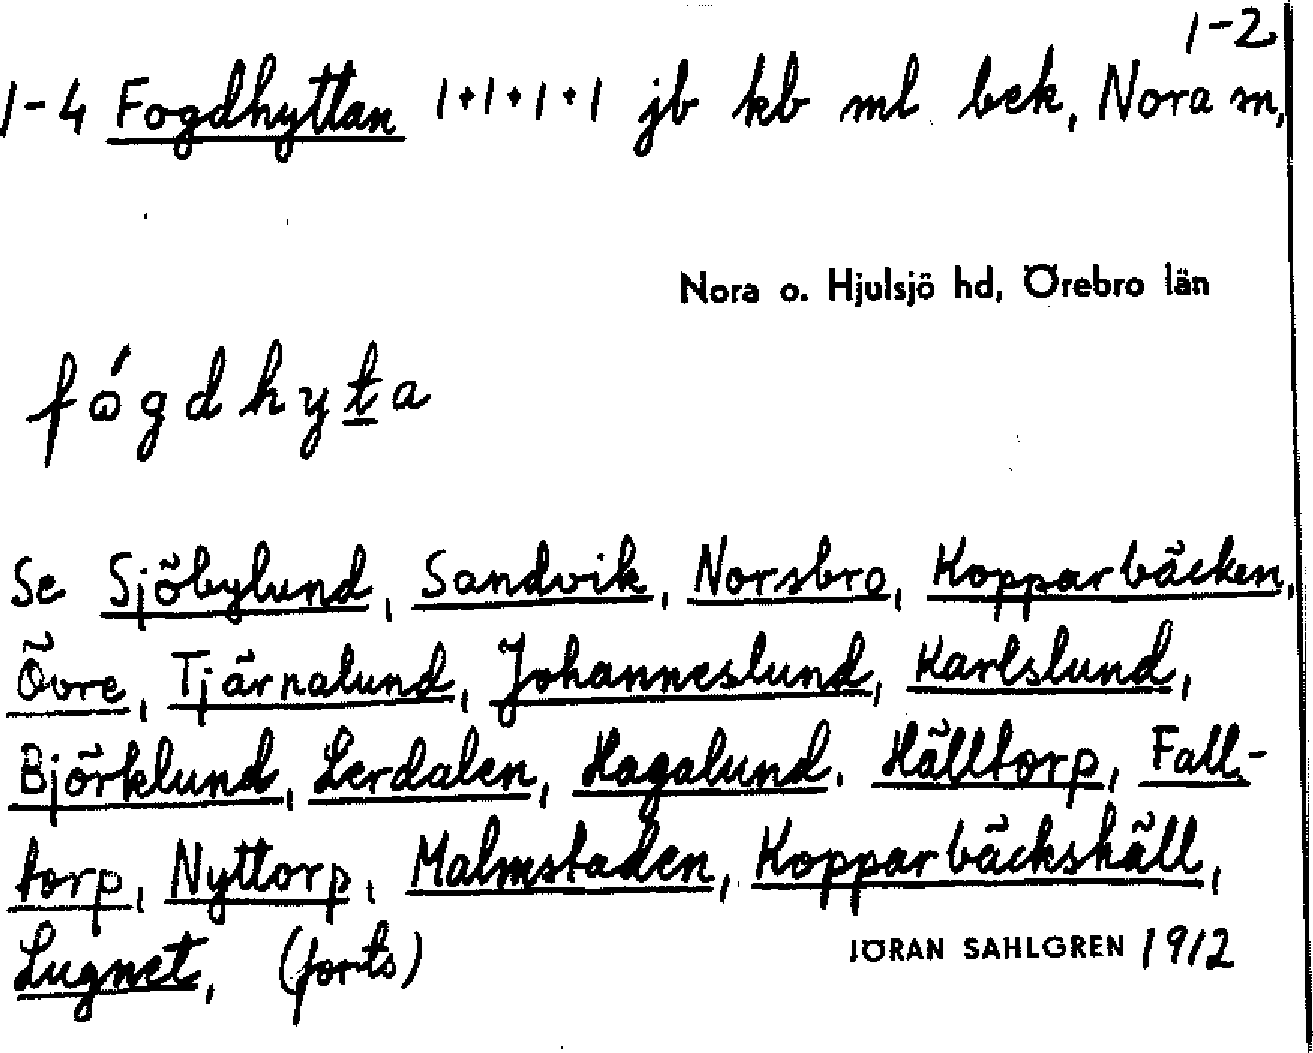 1-2
1-4 Fogdhyttan 1+1+1+1 jb kb ml bek, Nora m,
Nora o. Hjulsjö hd, Örebro län
fógdhyta
Se Sjöbylund, Sandvik, Norsbro, Kopparbäcken,
Övre, Tjärnalund, Johanneslund, Karlslund,
Björklund, Lerdalen, Hagalund. Hälltorp, Fall-
torp, Nyttorp, Malmstaden, Kopparbäckshäll,
Lugnet, (forts)
JÖRAN SAHLGREN 1912